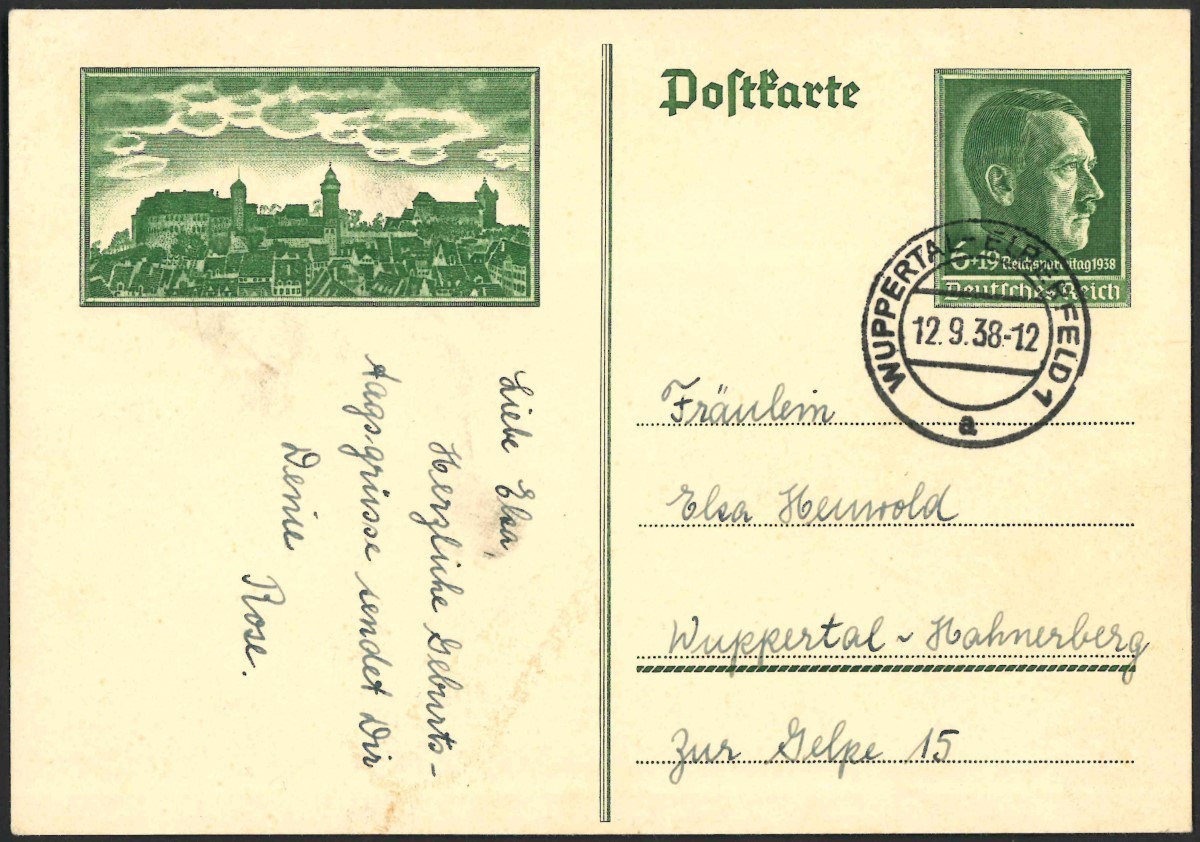 Postkarte
6+19 Reichsparteitag 1938
Deutsches Reich
WUPPERTAL-ELBERFELD 1
12.9.38-12
a
Liebe Elsa,
Herzliche Geburts-
tags-grüsse sendet Dir
Deine
Rose.
Fräulein
Elsa
Wuppertal - Hahnerberg
Zur Gelpe 15